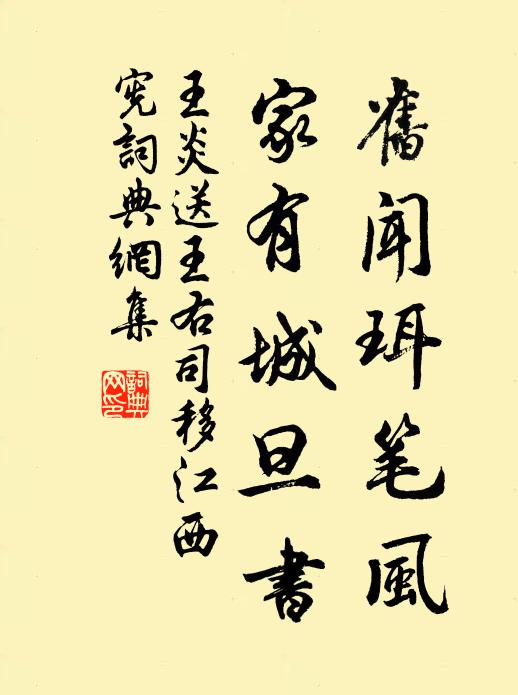 舊聞珥笔風
家有城旦書
王炎送王右司移江西
宪詞典網集
詞典
网印